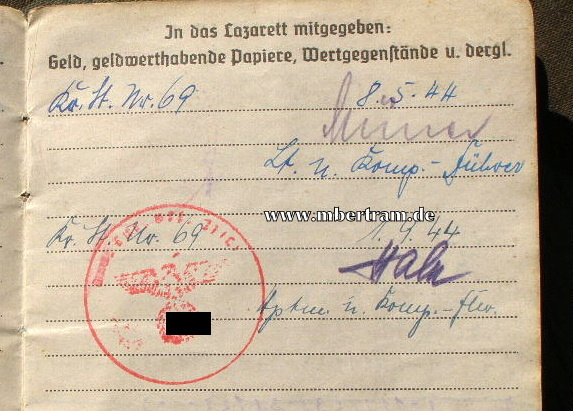 In das Lazarett mitgegeben:
Geld, geldwerthabende Papiere, Wertgegenstände u. dergl.
Kr. St. Nr. 69 8.5.44
Lt. u. Komp.-Führer
www.mbertram.de
Kr. St. Nr. 69 1.9.44
Hptm. u. Komp.-Fhr.